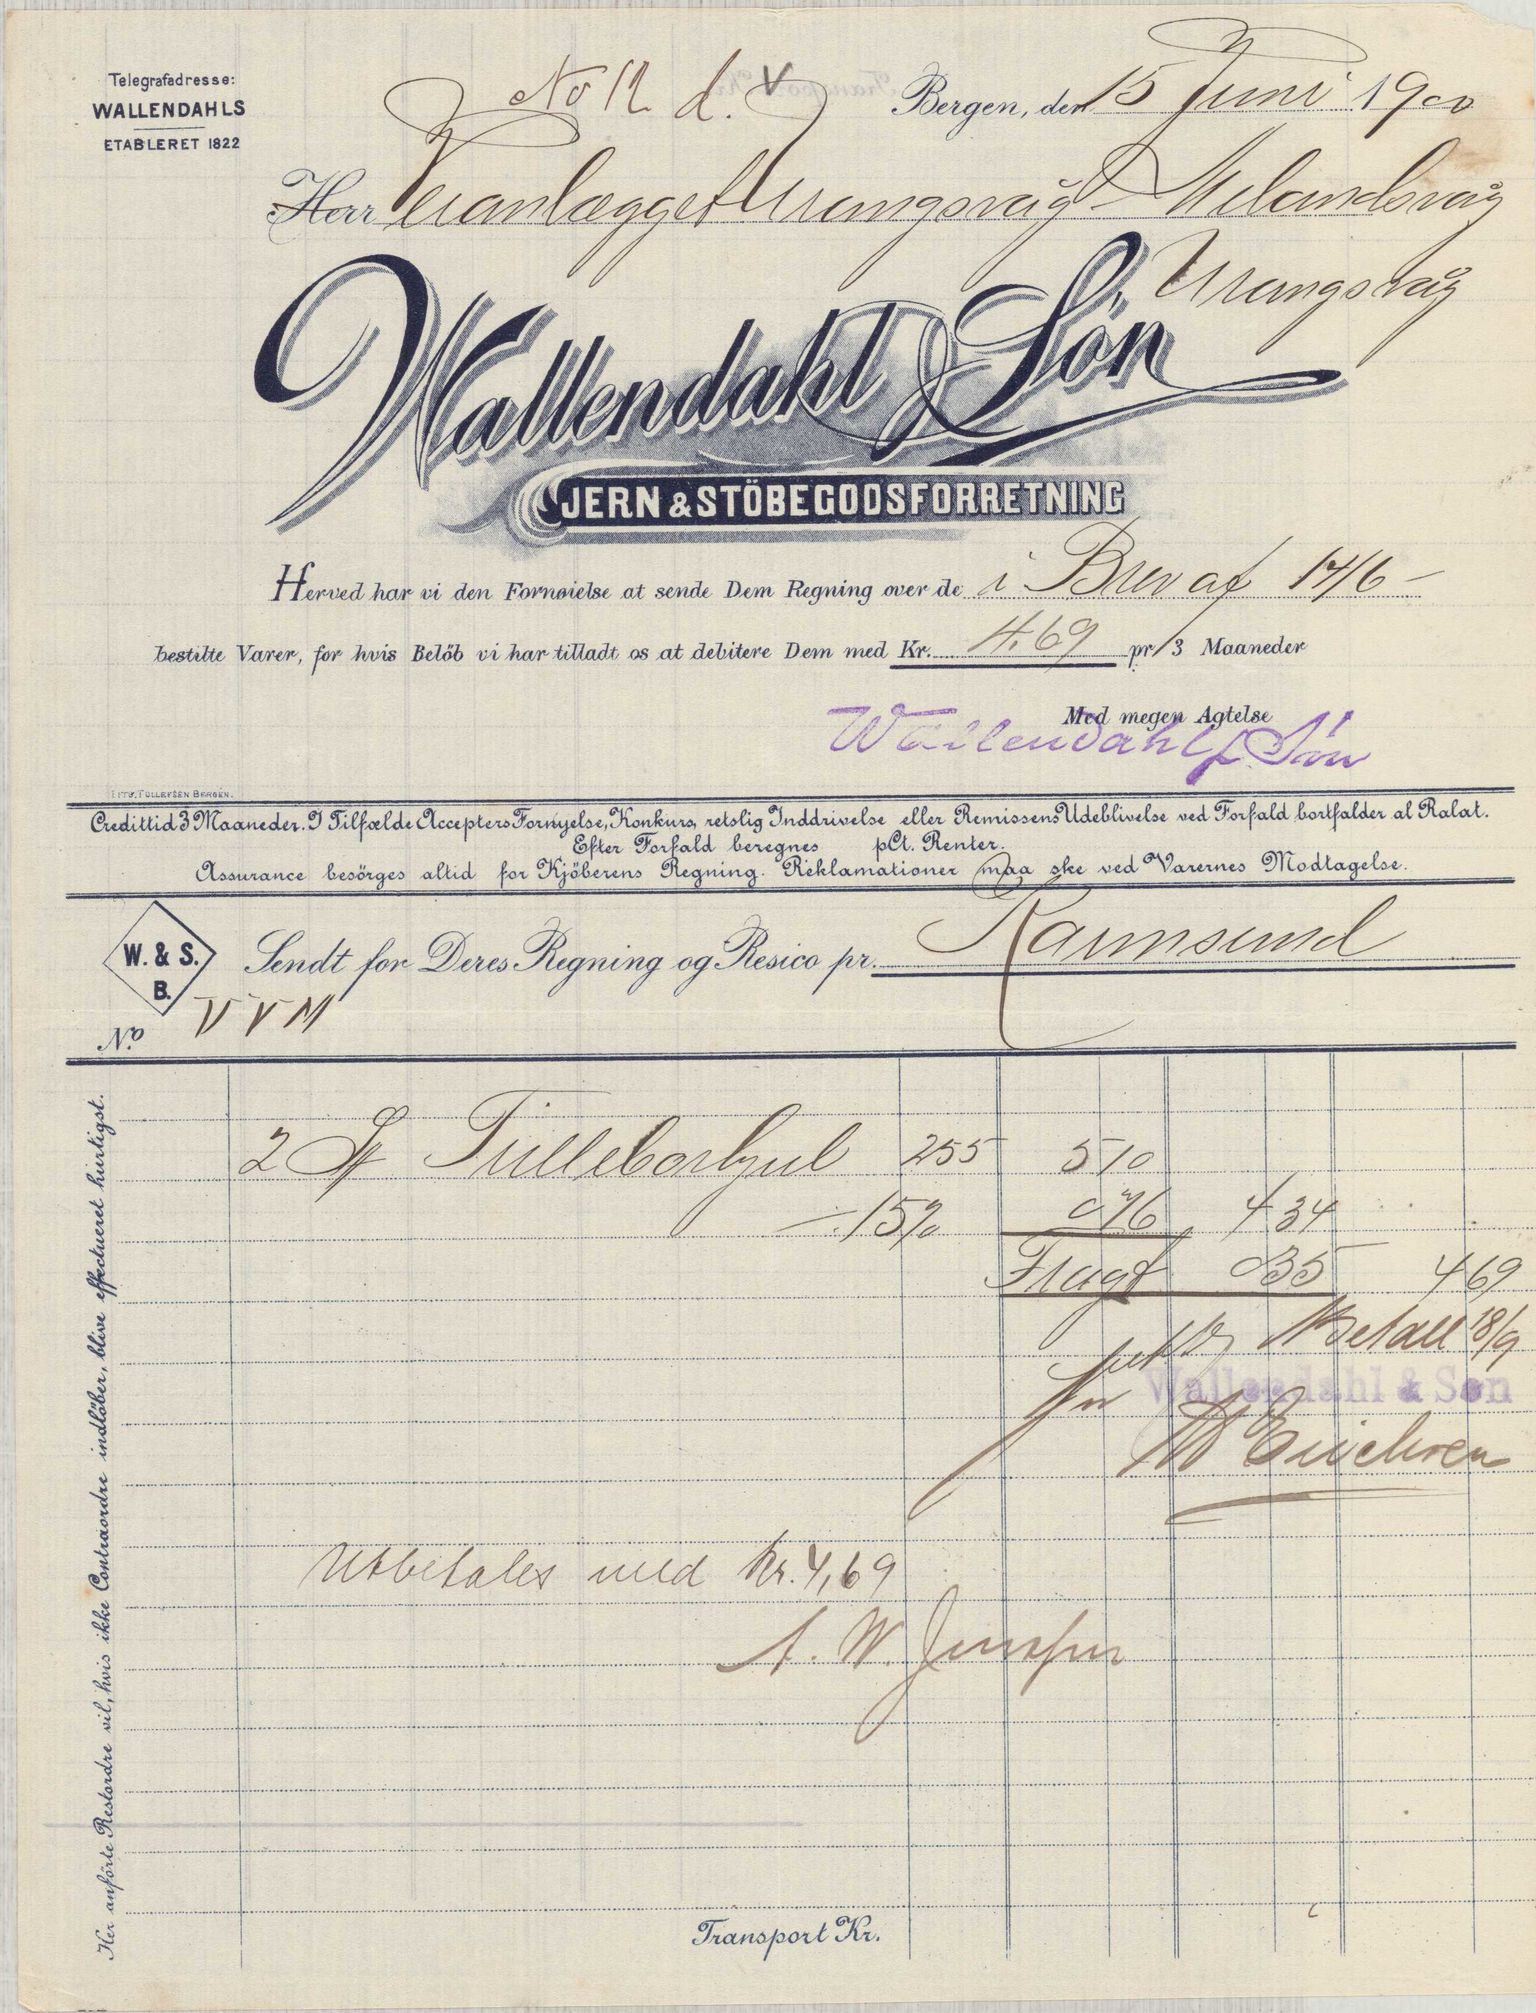 Telegrafadresse:
WALLENDAHLS
ETABLERET 1822
No 12 d. V
Bergen, den 15 Juni 1900
Herr Veianlægget Urangsvåg - Melandsvåg
Urangsvåg
Wallendahl & Søn
JERN & STÖBEGODSFORRETNING
Herved har vi den Fornøielse at sende Dem Regning over de i Brev af 14/6 -
bestilte Varer, for hvis Belöb vi har tilladt os at debitere Dem med Kr. 4.69 pr/3 Maaneder
Med megen Agtelse
Wallendahl & Søn
LITH. TOLLEFSEN BERGEN.
Credittid 3 Maaneder. I Tilfælde Accepters Fornyelse, Konkurs, retslig Inddrivelse eller Remissens Udeblivelse ved Forfald bortfalder al Rabat.
Efter Forfald beregnes pCt. Renter.
Assurance besörges altid for Kjöberens Regning. Reklamationer maa ske ved Varernes Modtagelse.
W. & S.
B.
Sendt for Deres Regning og Resico pr. Karmsund
No. V V M
2 St Trilleborhjul 255 510
÷ 15% 076 4 34
Fragt 035 4 69
Betalt 18/9
for Wallendahl & Søn
Utbetales med Kr. 4,69
A. W.
Transport Kr.
Her anförte Restordre vil, hvis ikke Contraordre indlöber, blive effectueret hurtigst.